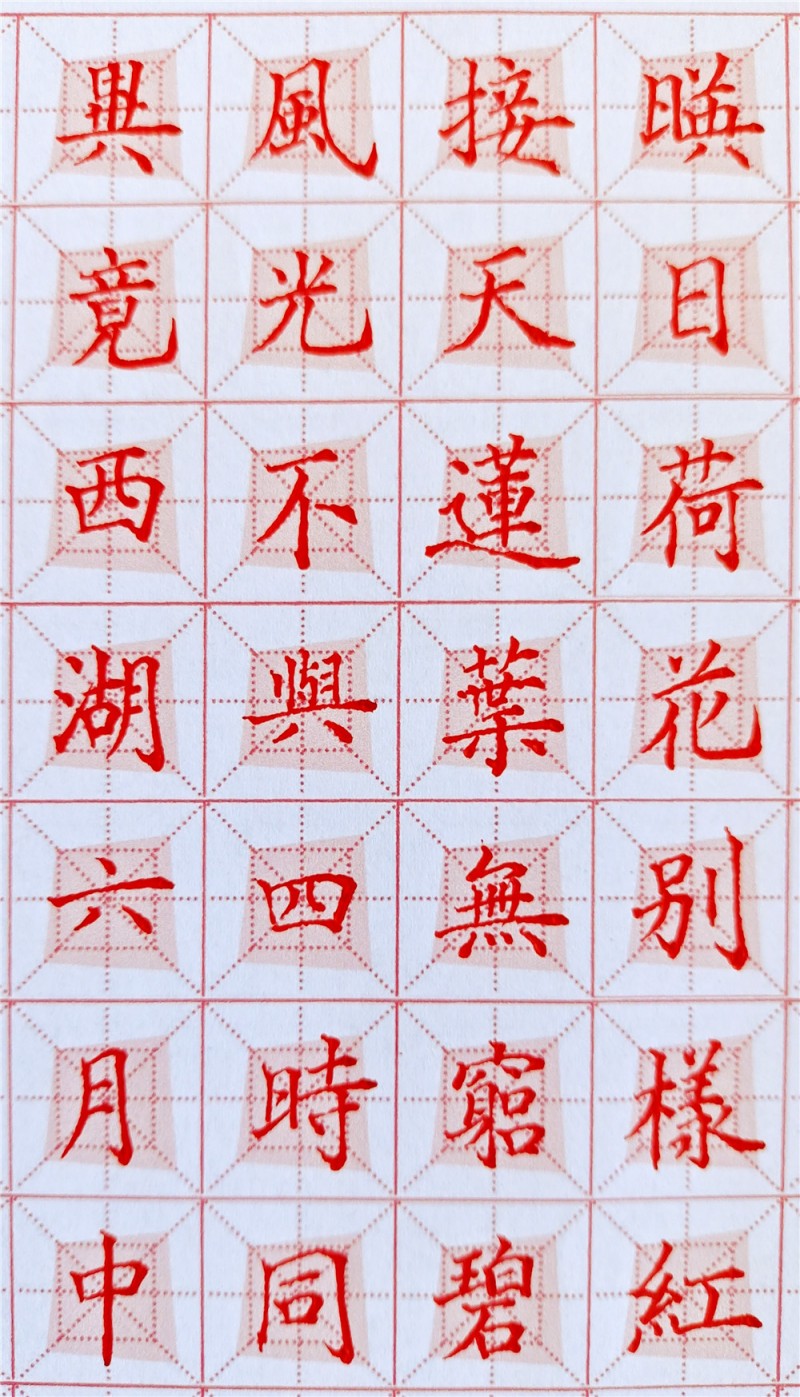 畢竟西湖六月中
風光不與四時同
接天蓮葉無窮碧
暎日荷花别樣紅